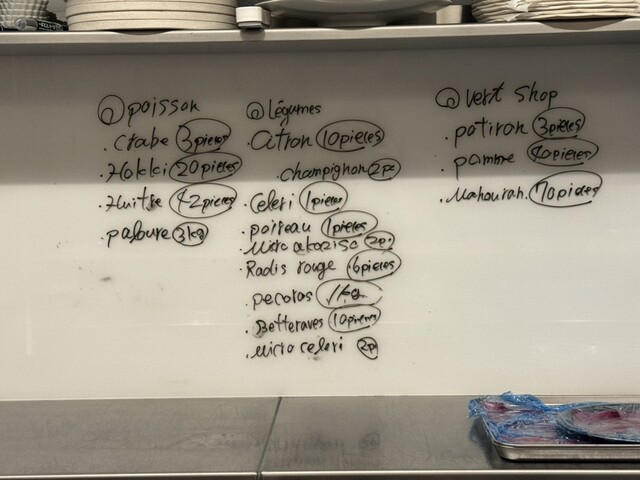 poisson
. crabe 3pieces
. Hakkei 20pieces
. Huitre 42pieces
. paloure 3kg
Légumes
. citron 10pieces
champignon 2pc
. celeri 1pieces
. poireau 1pieces
. micro 2p.
. Radis rouge 6pieces
. pecoras 1kg
. Betteraves 10pieces
. micro celeri 2p
vert shop
. potiron 3pieces
. pomme 40pieces
. Mahourah 70pieces